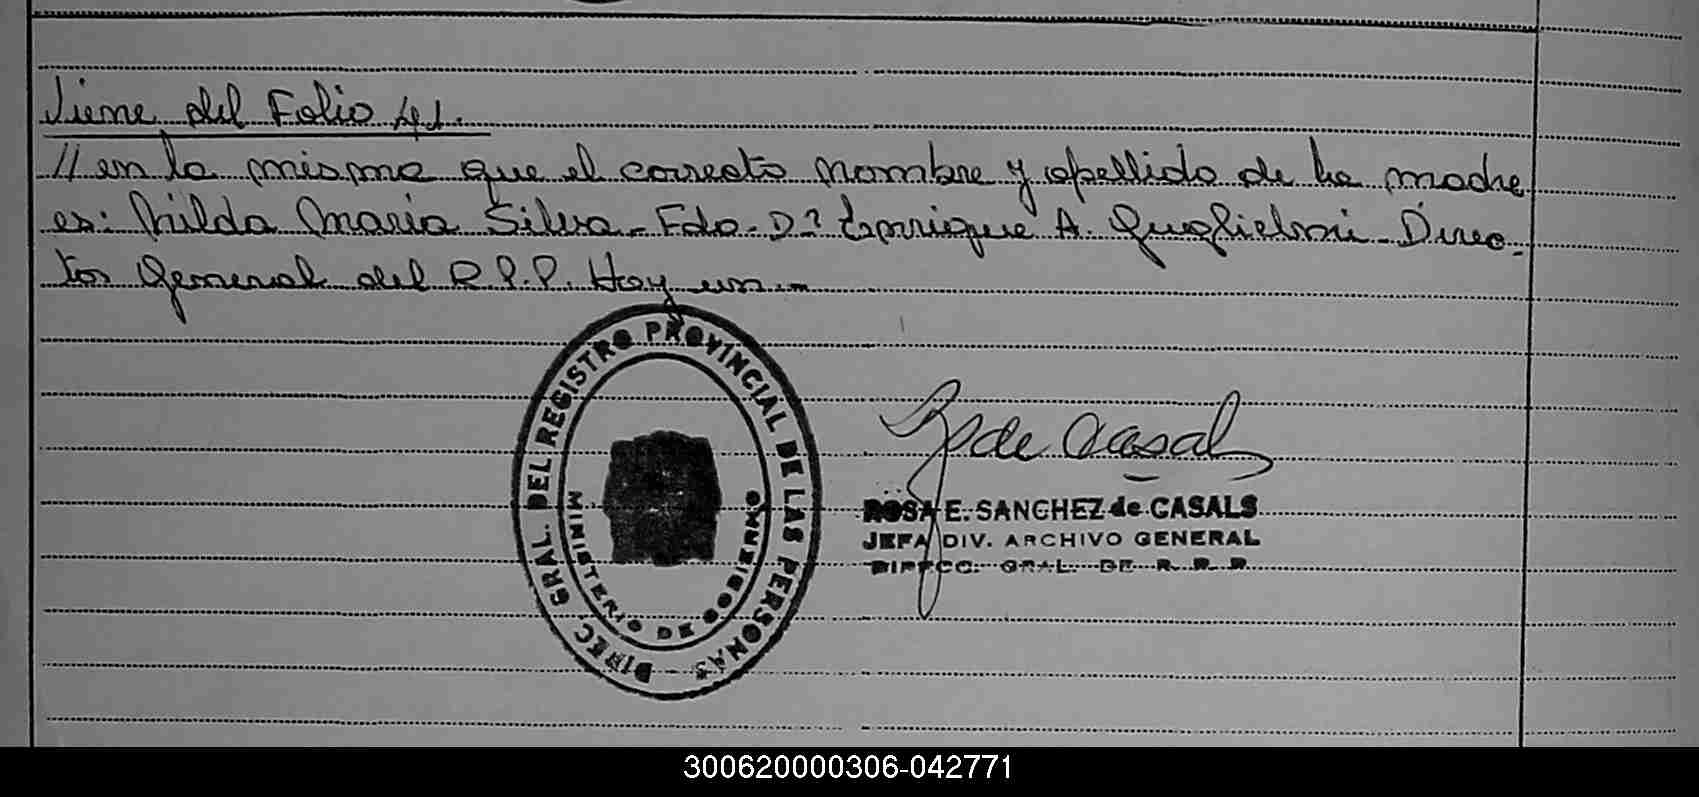 Viene del Folio 41.
// en la misma que el correcto nombre y apellido de la madre
es: Nilda Maria Silva - Fdo. Dº Enrique A. Guglielmi - Direc-
tor General del R.P.P. Hay un.-
DIREC. GRAL. DEL REGISTRO PROVINCIAL DE LAS PERSONAS
MINISTERIO DE GOBIERNO
R S de Casals
ROSA E. SANCHEZ de CASALS
JEFA DIV. ARCHIVO GENERAL
DIRECC. GRAL. DE R. P. P.
300620000306-042771